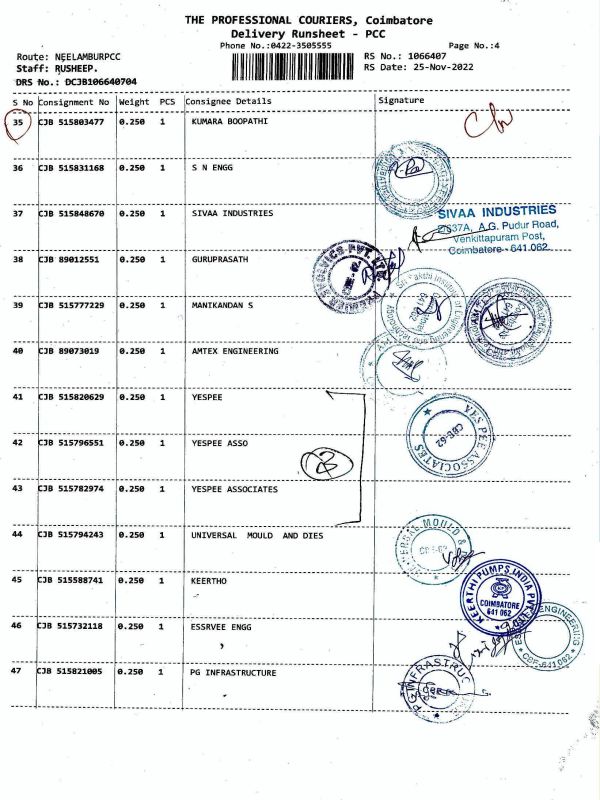 THE PROFESSIONAL COURIERS, Coimbatore
Delivery Runsheet - PCC
Phone No.:0422-3505555
Page No.:4
Route: NEELAMBURPCC
RS No.: 1066407
Staff: RUSHEEP.
RS Date: 25-Nov-2022
DRS No.: DCJB106640704
S No Consignment No Weight PCS Consignee Details Signature
35 CJB 515803477 0.250 1 KUMARA BOOPATHI
36 CJB 515831168 0.250 1 S N ENGG
37 CJB 515848670 0.250 1 SIVAA INDUSTRIES
SIVAA INDUSTRIES
A.G. Pudur Road,
Venkittapuram Post,
Coimbatore - 641 062.
38 CJB 89012551 0.250 1 GURUPRASATH
39 CJB 515777229 0.250 1 MANIKANDAN S
40 CJB 89073019 0.250 1 AMTEX ENGINEERING
41 CJB 515820629 0.250 1 YESPEE
42 CJB 515796551 0.250 1 YESPEE ASSO
YES PEE ASSOCIATES
CBE-62
43 CJB 515782974 0.250 1 YESPEE ASSOCIATES
44 CJB 515794243 0.250 1 UNIVERSAL MOULD AND DIES
45 CJB 515588741 0.250 1 KEERTHO
KEERTHI PUMPS INDIA PVT.
COIMBATORE
641 062
46 CJB 515732118 0.250 1 ESSRVEE ENGG
ENGINEERING
CBE-641062
47 CJB 515821005 0.250 1 PG INFRASTRUCTURE